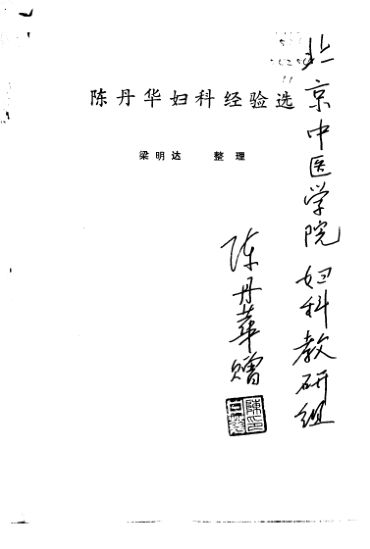 陈丹华妇科经验选
梁明达 整理
北京中医学院妇科教研组
陈丹華赠